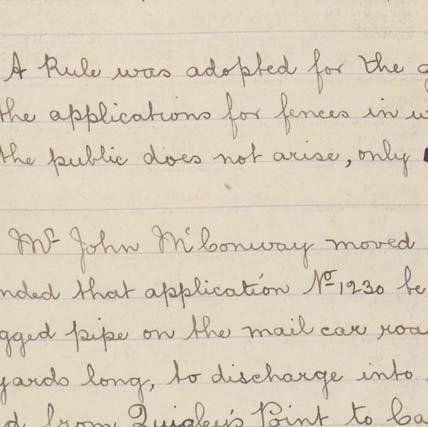 A Rule was adopted for the
the applications for fences in
the public does not arise, only
Mr John McConway moved
nded that application No 1230 be
gged pipe on the mail car roa
yards long, to discharge into
d from Quigley's Point to Ca